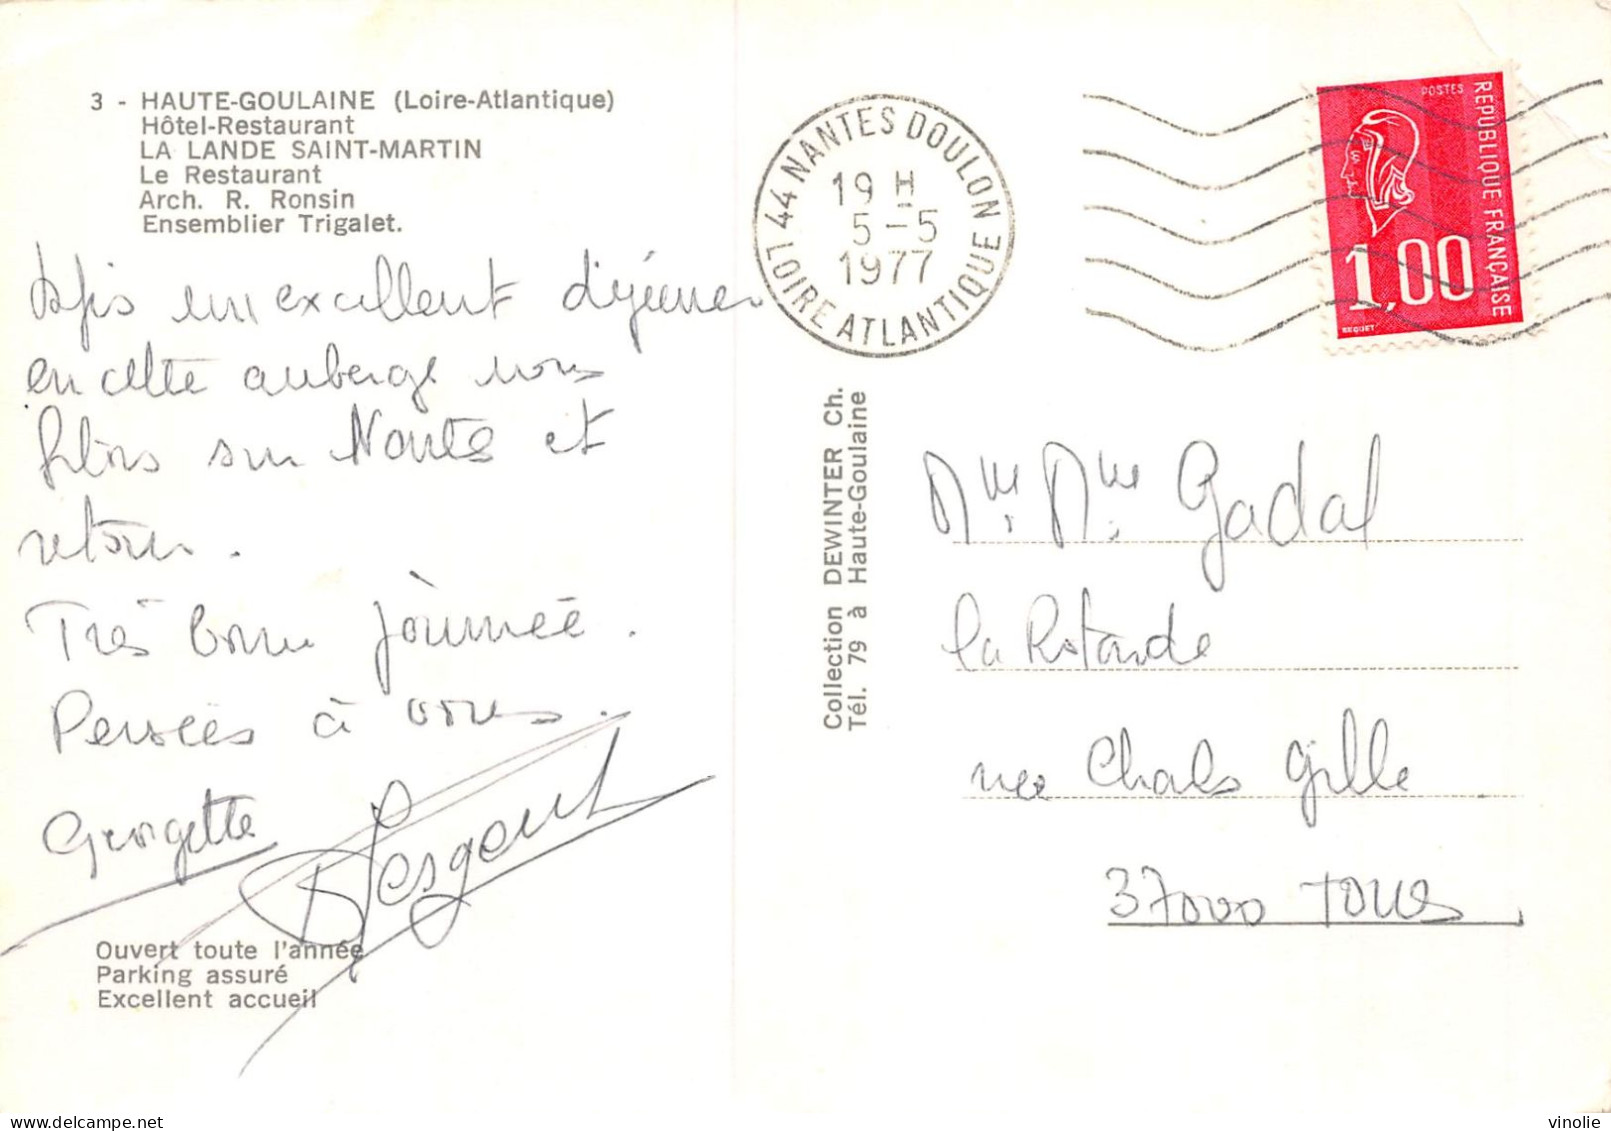 3 - HAUTE-GOULAINE (Loire-Atlantique)
Hôtel-Restaurant
LA LANDE SAINT-MARTIN
Le Restaurant
Arch. R. Ronsin
Ensemblier Trigalet.
un excellent déjeuner
en cette auberge nous
filons sur Nantes et
retour.
Très bonne journée.
Pensées à vous.
Georgette
Ouvert toute l'année
Parking assuré
Excellent accueil
44 NANTES DOULON
19 H
5-5
1977
LOIRE ATLANTIQUE
POSTES
REPUBLIQUE FRANÇAISE
1,00
BEQUET
Collection DEWINTER Ch.
Tél. 79 à Haute-Goulaine
Gadal
la Rotonde
rue Charles Gille
37000 TOURS
vinolie